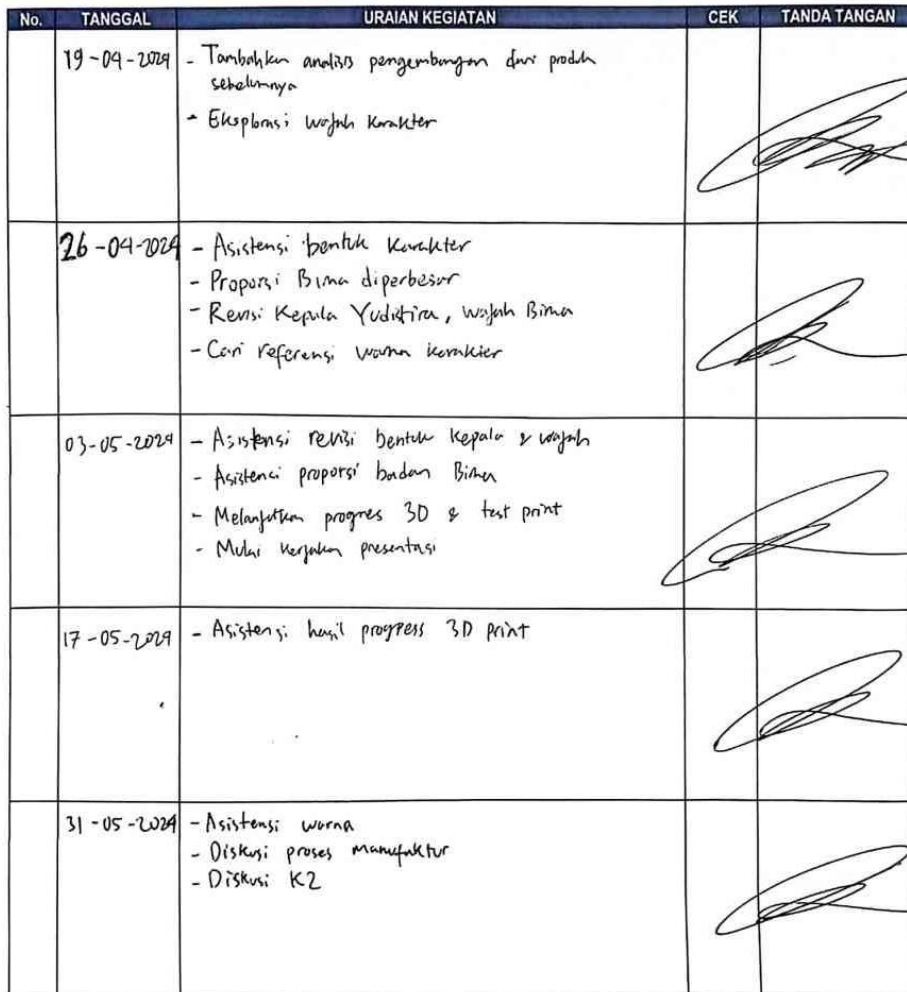 No. TANGGAL URAIAN KEGIATAN CEK TANDA TANGAN
19-04-2024 - Tambahkan analisis pengembangan dari produk
sebelumnya
- Eksplorasi wajah karakter
26-04-2024 - Asistensi bentuk karakter
- Proporsi Bima diperbesar
- Revisi Kepala Yudistira, wajah Bima
- Cari referensi warna karakter
03-05-2024 - Asistensi revisi bentuk kepala & wajah
- Asistensi proporsi badan Bima
- Melanjutkan progres 3D & test print
- Mulai kerjakan presentasi
17-05-2024 - Asistensi hasil progress 3D print
31-05-2024 - Asistensi warna
- Diskusi proses manufaktur
- Diskusi K2